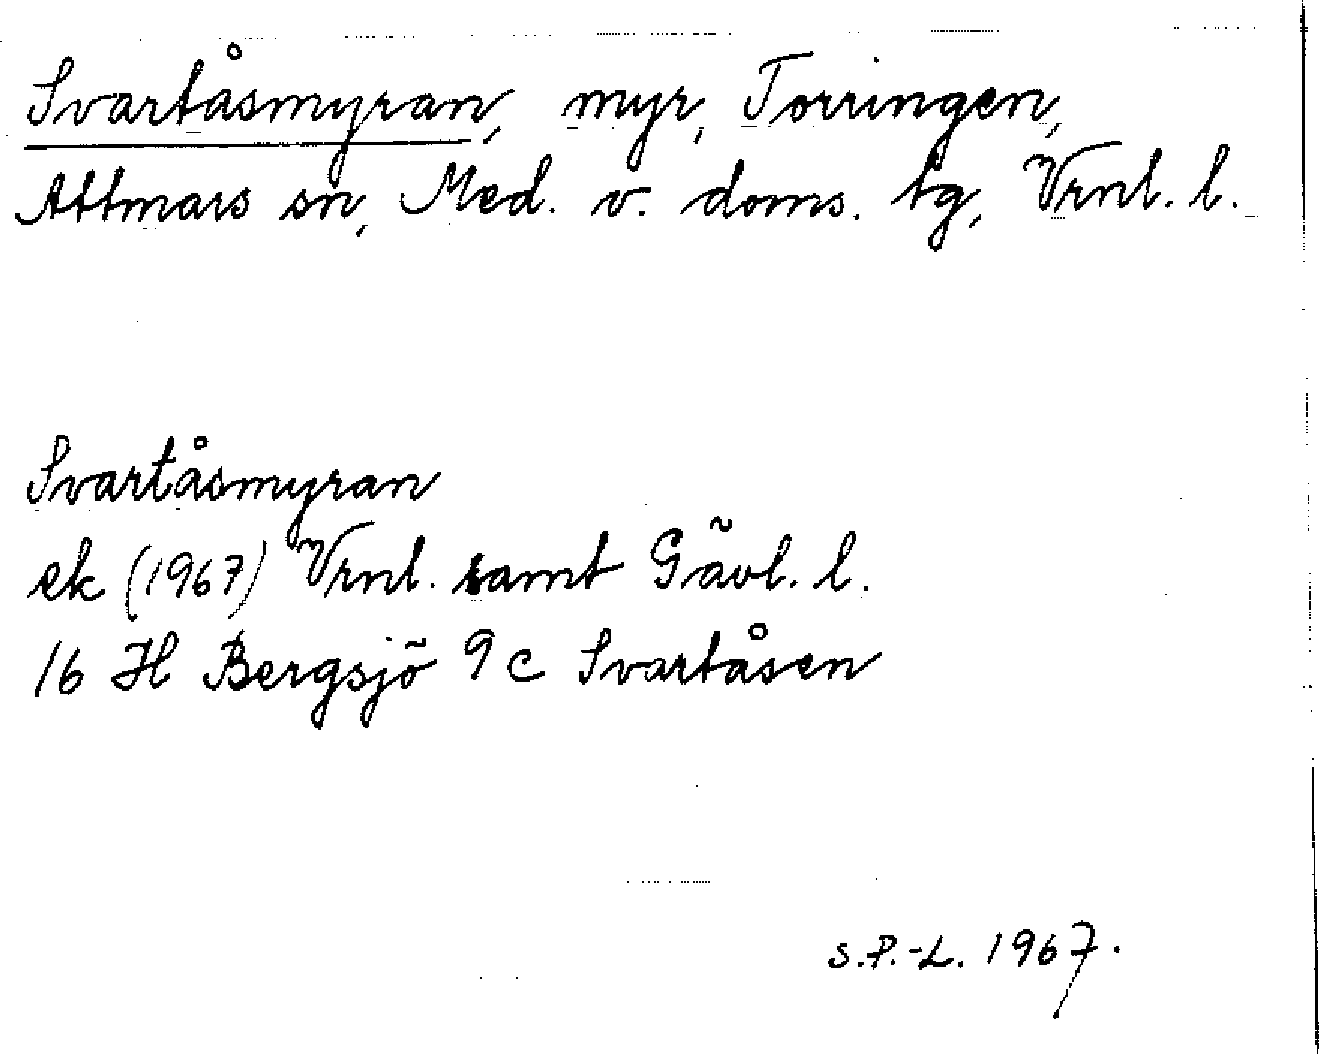 Svartåsmyran, myr, Torringen,
Attmars sn, Med. v. doms. tg, Vrnl. l.
Svartåsmyran
ek (1967) Vrnl. samt Gävl. l.
16 H Bergsjö 9 c Svartåsen
S.P.-L. 1967.